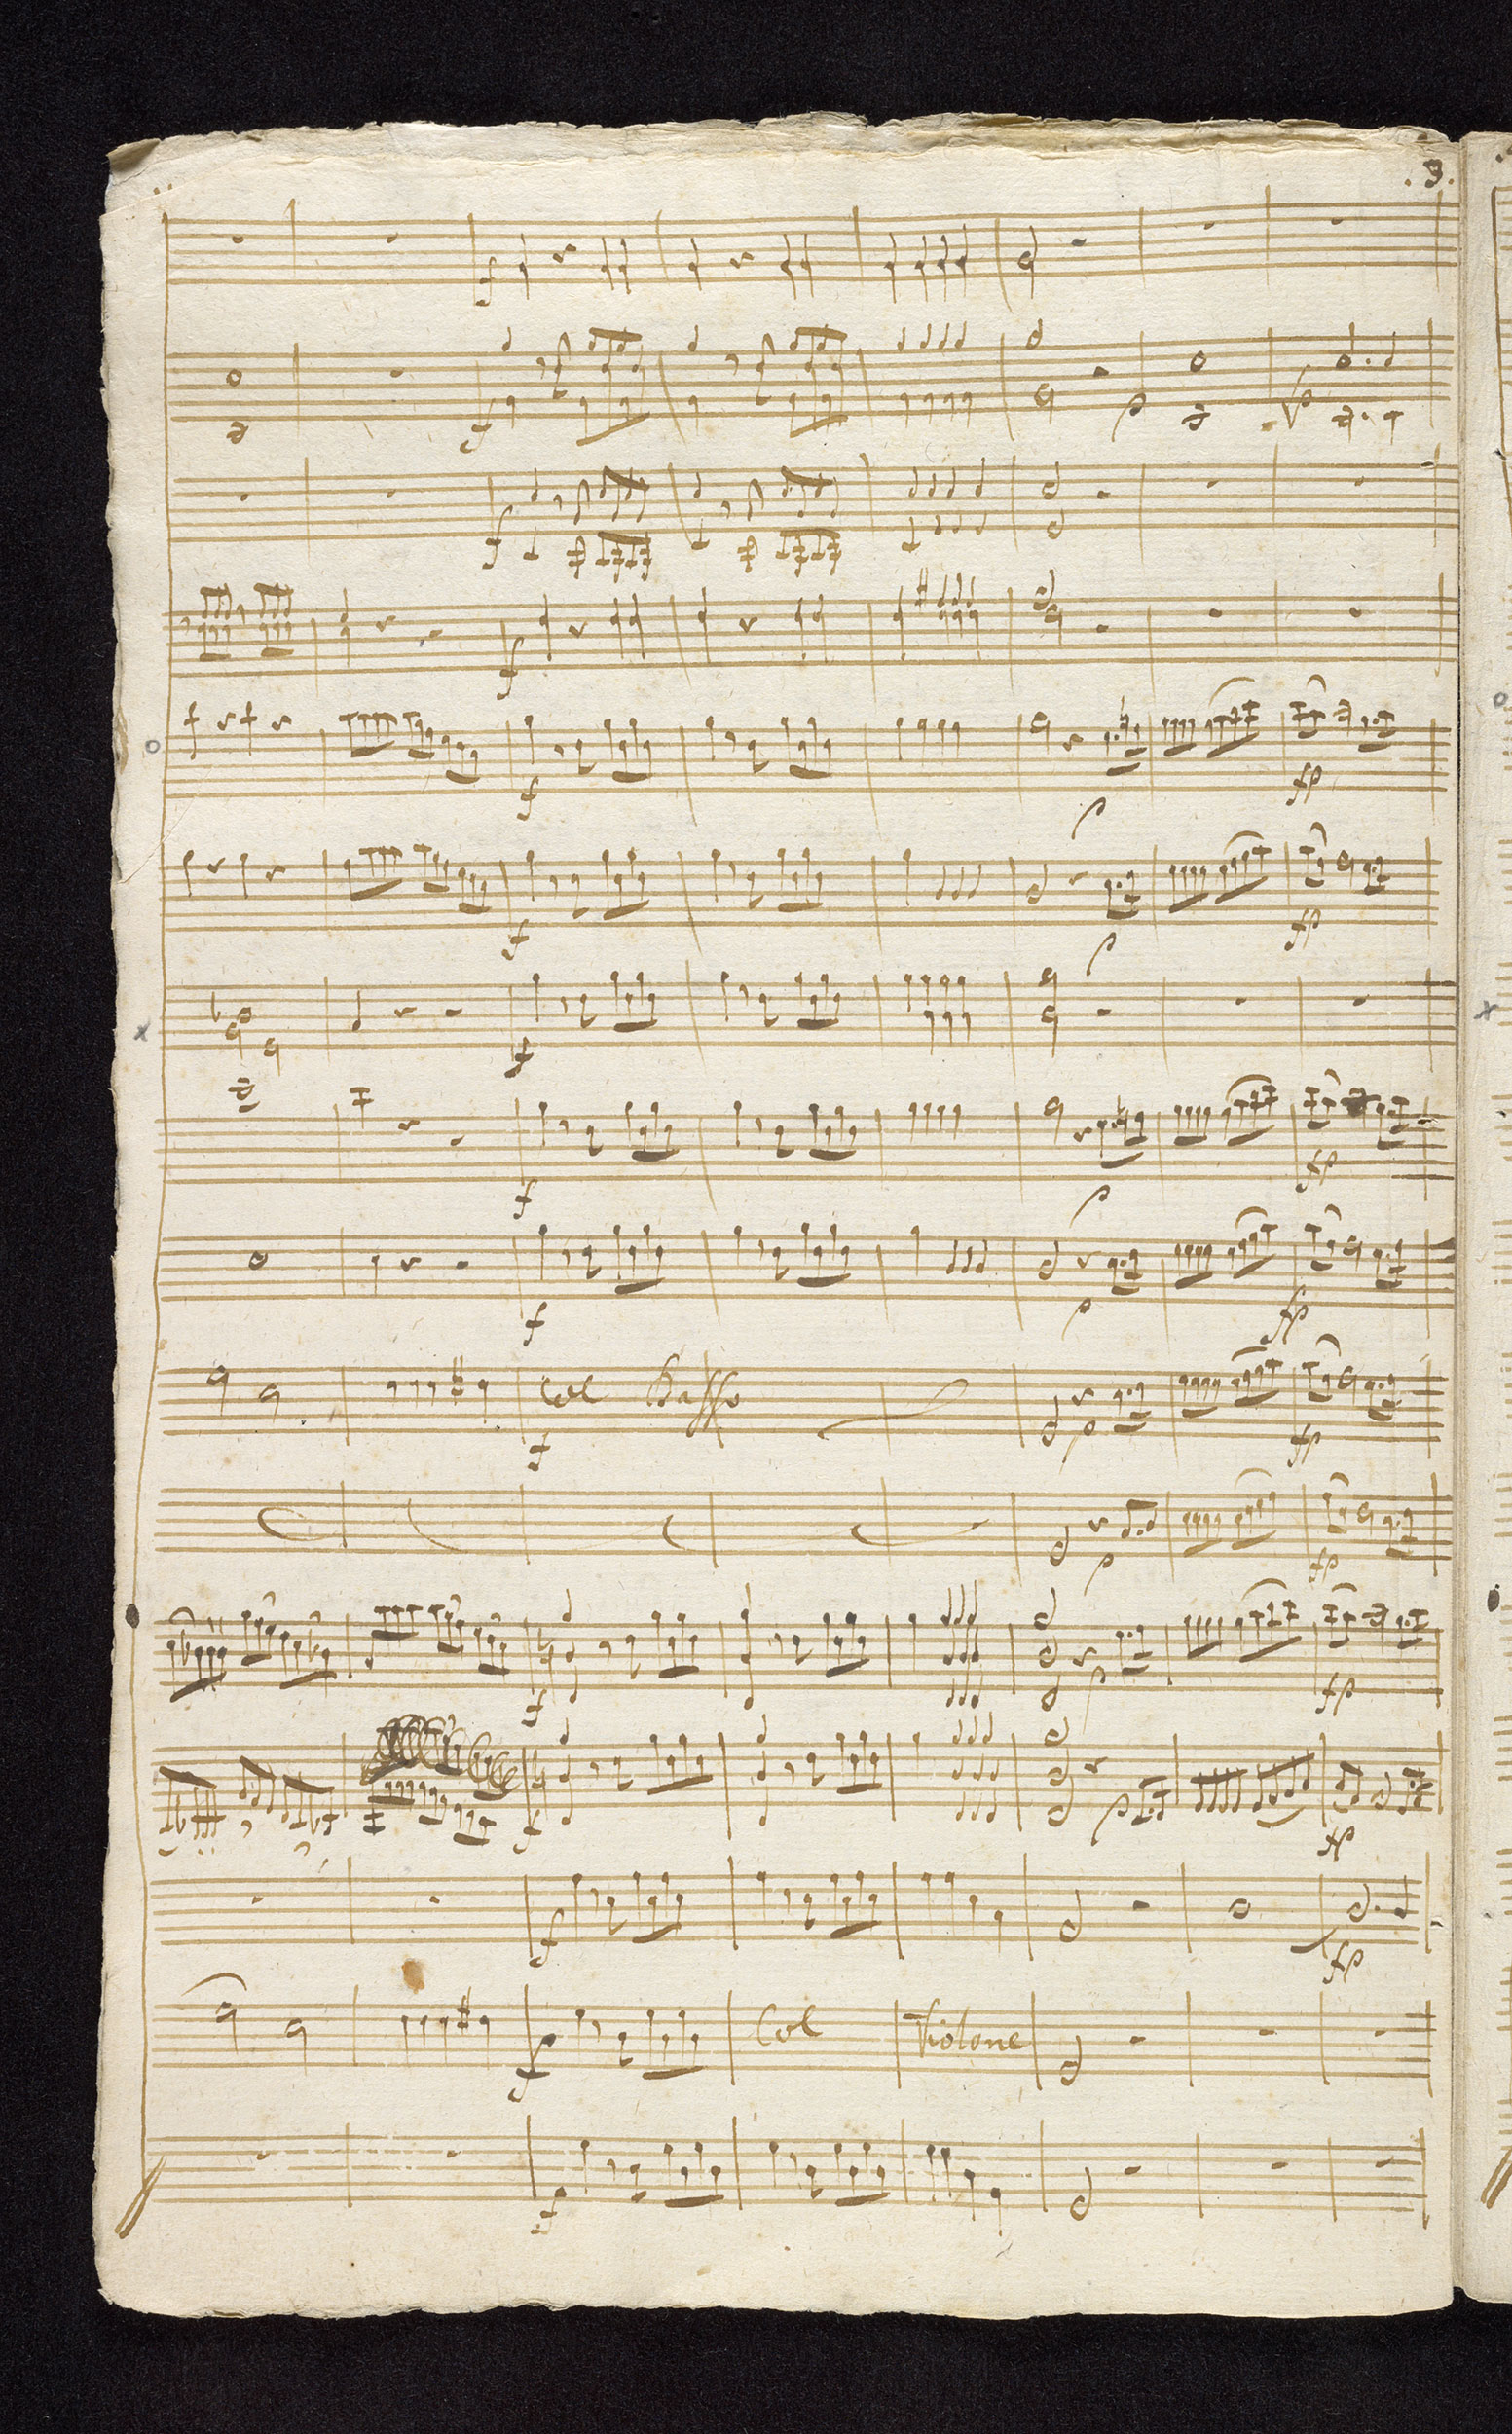 .3.
f
f
p
fp
f
f
f
p
fp
f
p
fp
f
f
p
fp
f
p
fp
Col Basso
f
p
fp
p
fp
f
p
fp
f
p
fp
f
fp
Col Violone
f
f